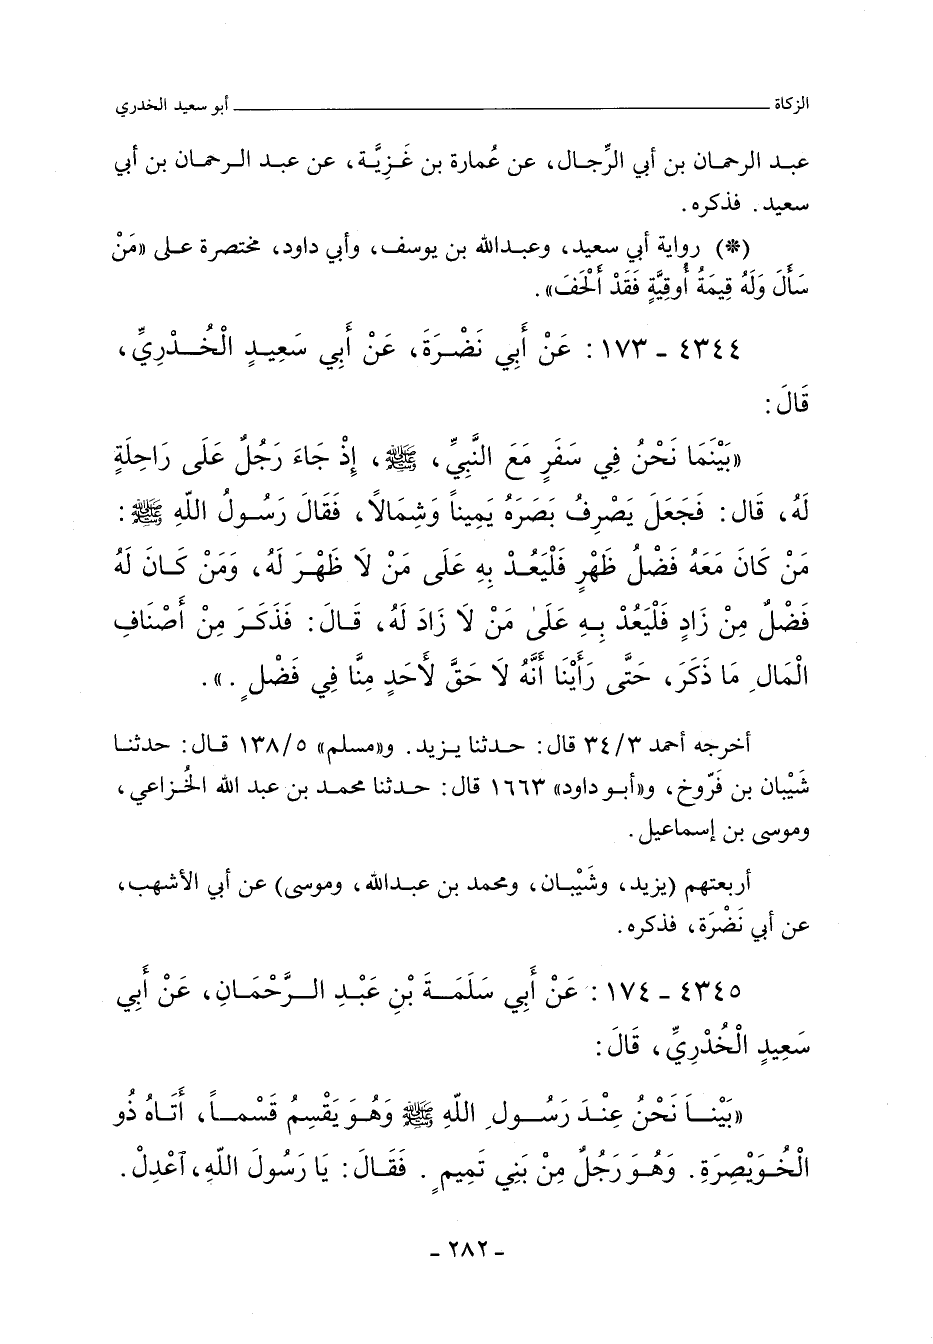 الزكاة ــــــــــــــــــــ أبو سعيد الخدري
عبد الرحمان بن أبي الرِّجال، عن عُمارة بن غَزِيَّة، عن عبد الرحمان بن أبي
سعيد. فذكره.
(*) رواية أبي سعيد، وعبدالله بن يوسف، وأبي داود، مختصرة على «مَنْ
سَأَلَ وَلَهُ قِيمَةُ أُوقِيَّةٍ فَقَدْ أَلْحَفَ».
٤٣٤٤ - ١٧٣ : عَنْ أَبِي نَضْرَةَ، عَنْ أَبِي سَعِيدٍ الْخُدْرِيِّ،
قَالَ:
«بَيْنَمَا نَحْنُ فِي سَفَرٍ مَعَ النَّبِيِّ، ﷺ، إِذْ جَاءَ رَجُلٌ عَلَى رَاحِلَةٍ
لَهُ، قَالَ: فَجَعَلَ يَصْرِفُ بَصَرَهُ يَمِيناً وَشِمَالًا، فَقَالَ رَسُولُ اللّهِ ﷺ:
مَنْ كَانَ مَعَهُ فَضْلُ ظَهْرٍ فَلْيَعُدْ بِهِ عَلَى مَنْ لَا ظَهْرَ لَهُ، وَمَنْ كَانَ لَهُ
فَضْلٌ مِنْ زَادٍ فَلْيَعُدْ بِهِ عَلَىٰ مَنْ لَا زَادَ لَهُ، قَالَ: فَذَكَرَ مِنْ أَصْنَافِ
الْمَالِ مَا ذَكَرَ، حَتَّى رَأَيْنَا أَنَّهُ لَا حَقَّ لأَحَدٍ مِنَّا فِي فَضْلٍ.».
أخرجه أحمد ٣٤/٣ قال: حدثنا يزيد. و«مسلم» ١٣٨/٥ قال: حدثنا
شَيْبان بن فَرّوخ، و«أبو داود» ١٦٦٣ قال: حدثنا محمد بن عبد الله الخُزاعي،
وموسى بن إسماعيل.
أربعتهم (يزيد، وشَيْبان، ومحمد بن عبدالله، وموسى) عن أبي الأشهب،
عن أبي نَضْرَة، فذكره.
٤٣٤٥ - ١٧٤ : عَنْ أَبِي سَلَمَةَ بْنِ عَبْدِ الرَّحْمَانِ، عَنْ أَبِي
سَعِيدٍ الْخُدْرِيِّ، قَالَ:
«بَيْنَا نَحْنُ عِنْدَ رَسُولِ اللّهِ ﷺ وَهُوَ يَقْسِمُ قَسْماً، أَتَاهُ ذُو
الْخُوَيْصِرَةِ. وَهُوَ رَجُلٌ مِنْ بَنِي تَمِيمٍ. فَقَالَ: يَا رَسُولَ اللّهِ، اَعْدِلْ.
- ٢٨٢ -